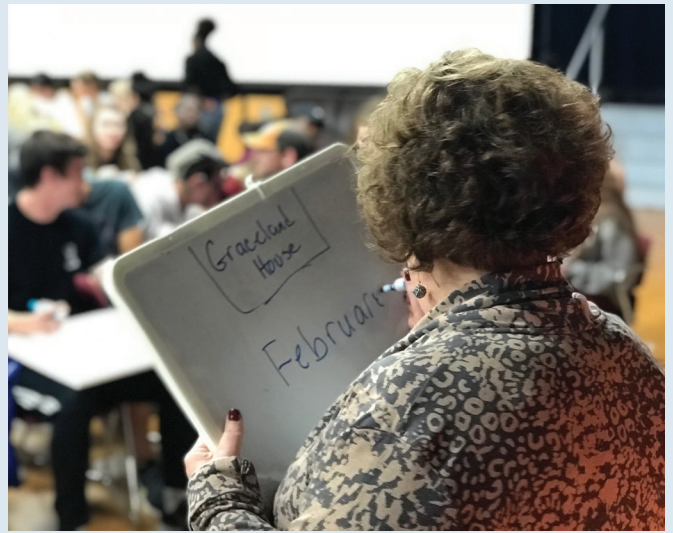 Graceland
House
Februar